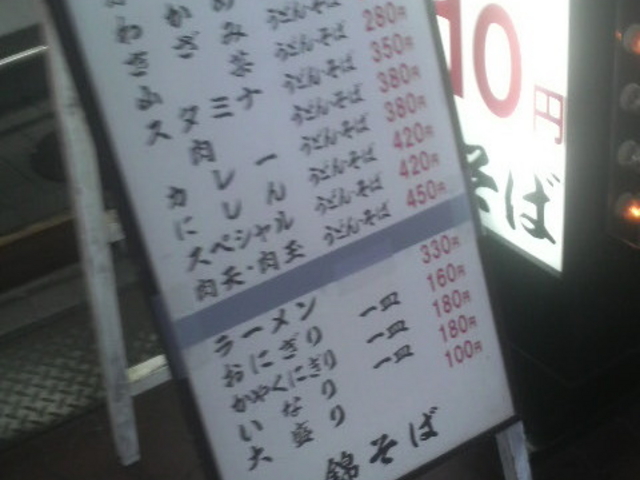 わかめ うどん・そば
きざみ うどん・そば
山菜 うどん・そば 280円
スタミナ うどん・そば 350円
肉 うどん・そば 380円
カレー うどん・そば 380円
にしん うどん・そば 420円
スペシャル うどん・そば 420円
肉天・肉玉 うどん・そば 450円
ラーメン 330円
おにぎり 一皿 160円
かやくにぎり 一皿 180円
いなり 一皿 180円
大盛り 100円
錦そば
10円
そば